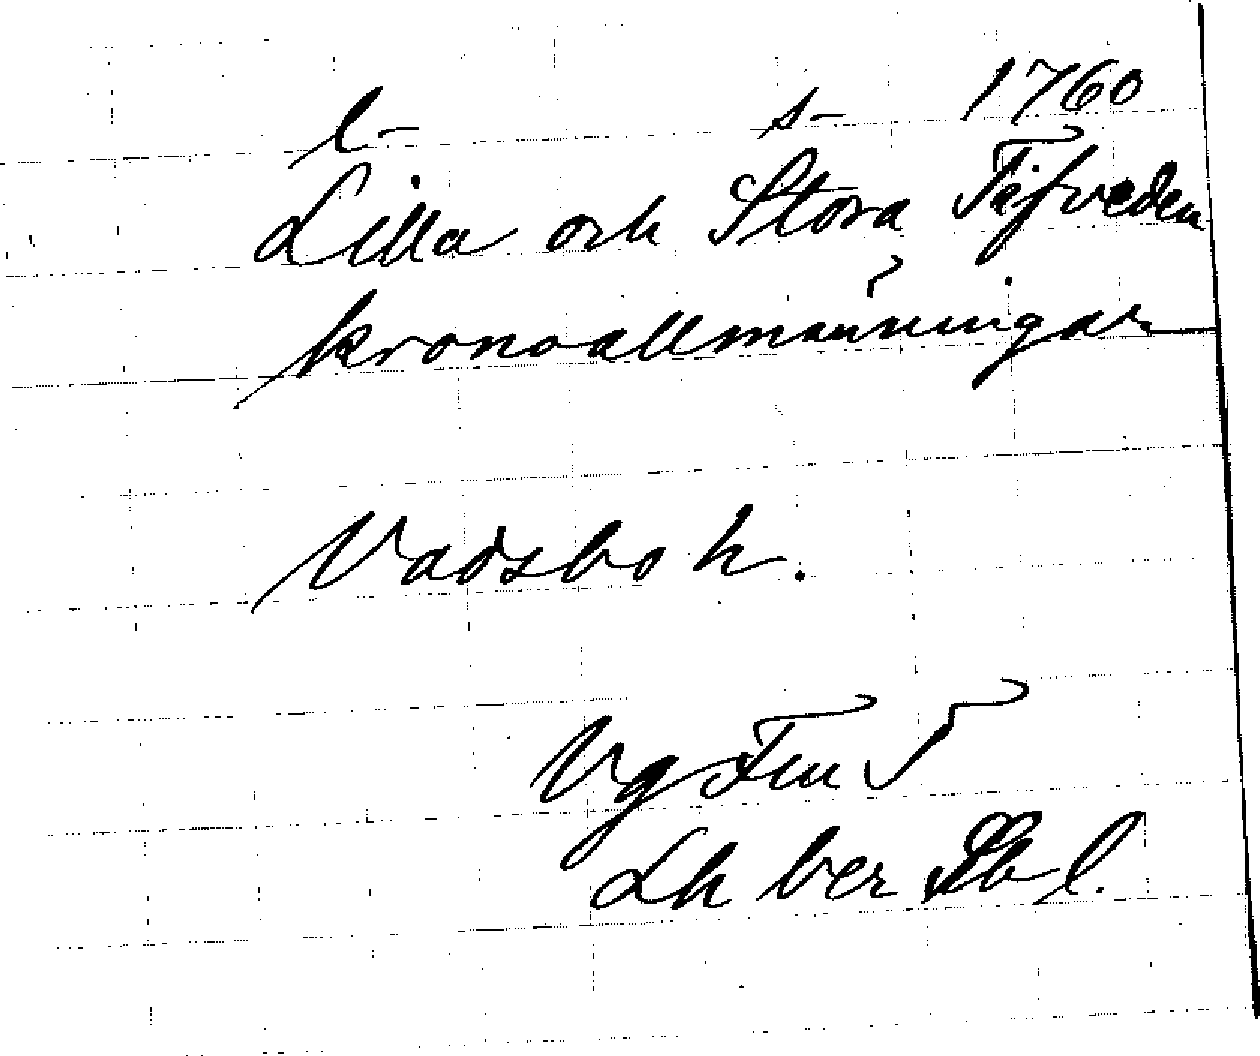 l- s- 1760
Lilla och Stora Tifveden
kronoallmänningar
Vadsbo h.
Vg Fem 5
Lh ber Skbl.